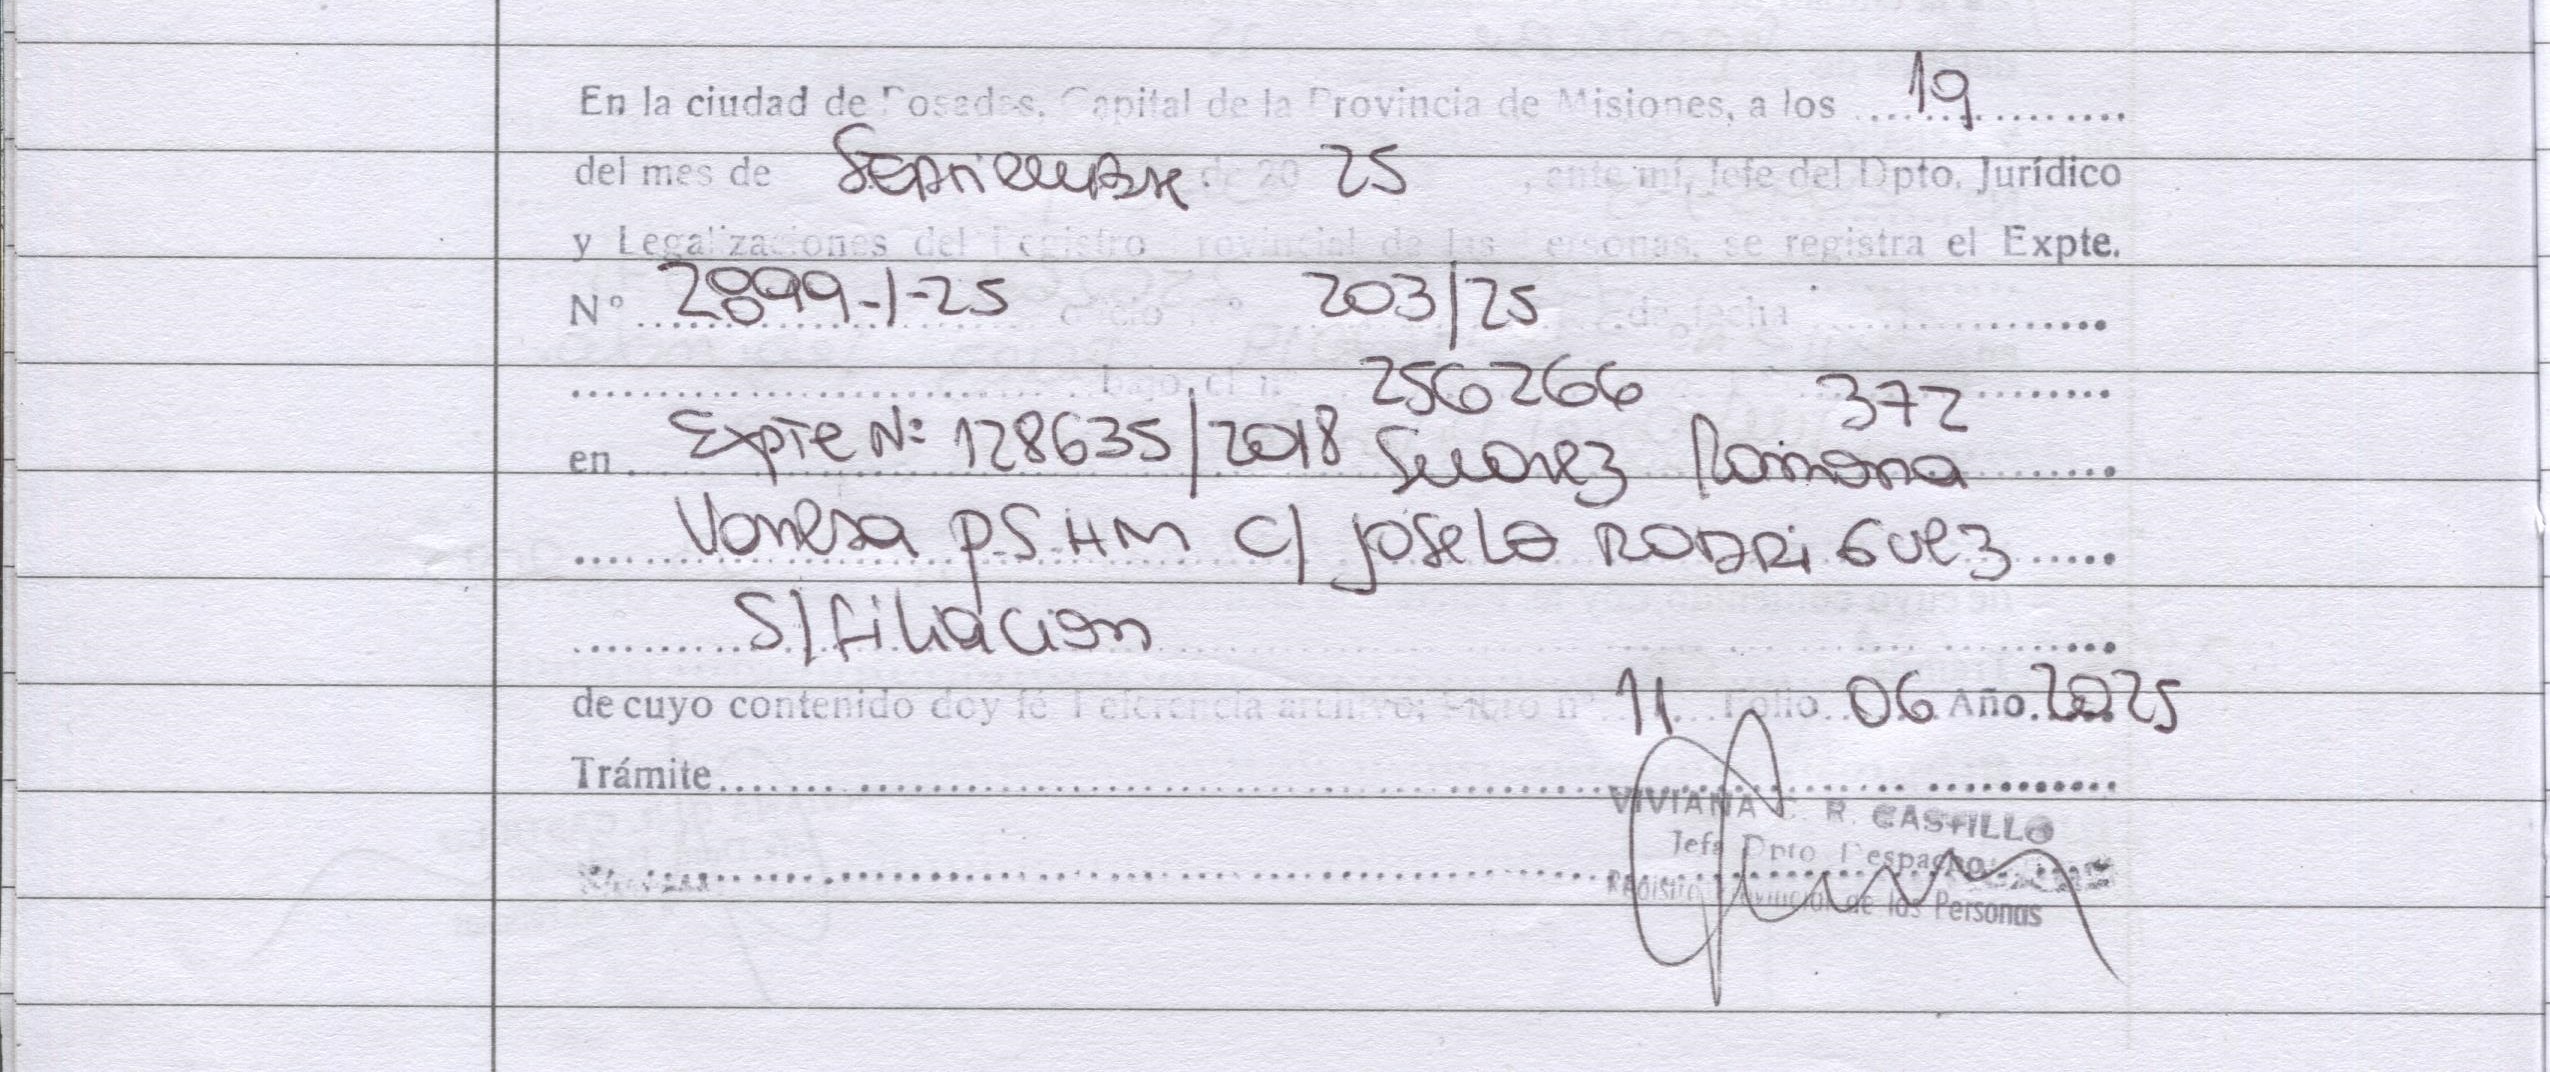 En la ciudad de Posadas, Capital de la Provincia de Misiones, a los 19
del mes de Septiembre de 20 25, ante mí, Jefe del Dpto. Jurídico
y Legalizaciones del Registro Provincial de las Personas, se registra el Expte.
N° 2899-1-25 Oficio N° 203/25 de fecha
bajo el n° 256266 372
en Expte Nº 128635/2018 Suarez Ramona
Vanesa p.s.H.M c/ Joselo Rodriguez
S/filiacion
de cuyo contenido doy fé. Referencia archivo: Libro n° 11 Folio 06 Año 2025
Trámite
VIVIANA C. R. CASTILLO
Jefa Dpto. Despacho
Registro Provincial de las Personas